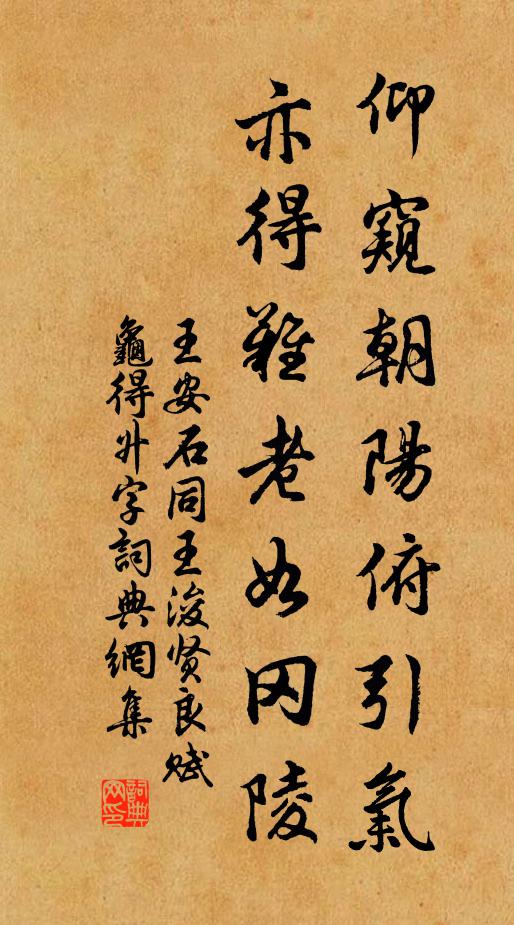 仰窺朝陽俯引氣
亦得難老如冈陵
王安石同王浚贤良赋
龜得升字詞典網集
詞典
网印